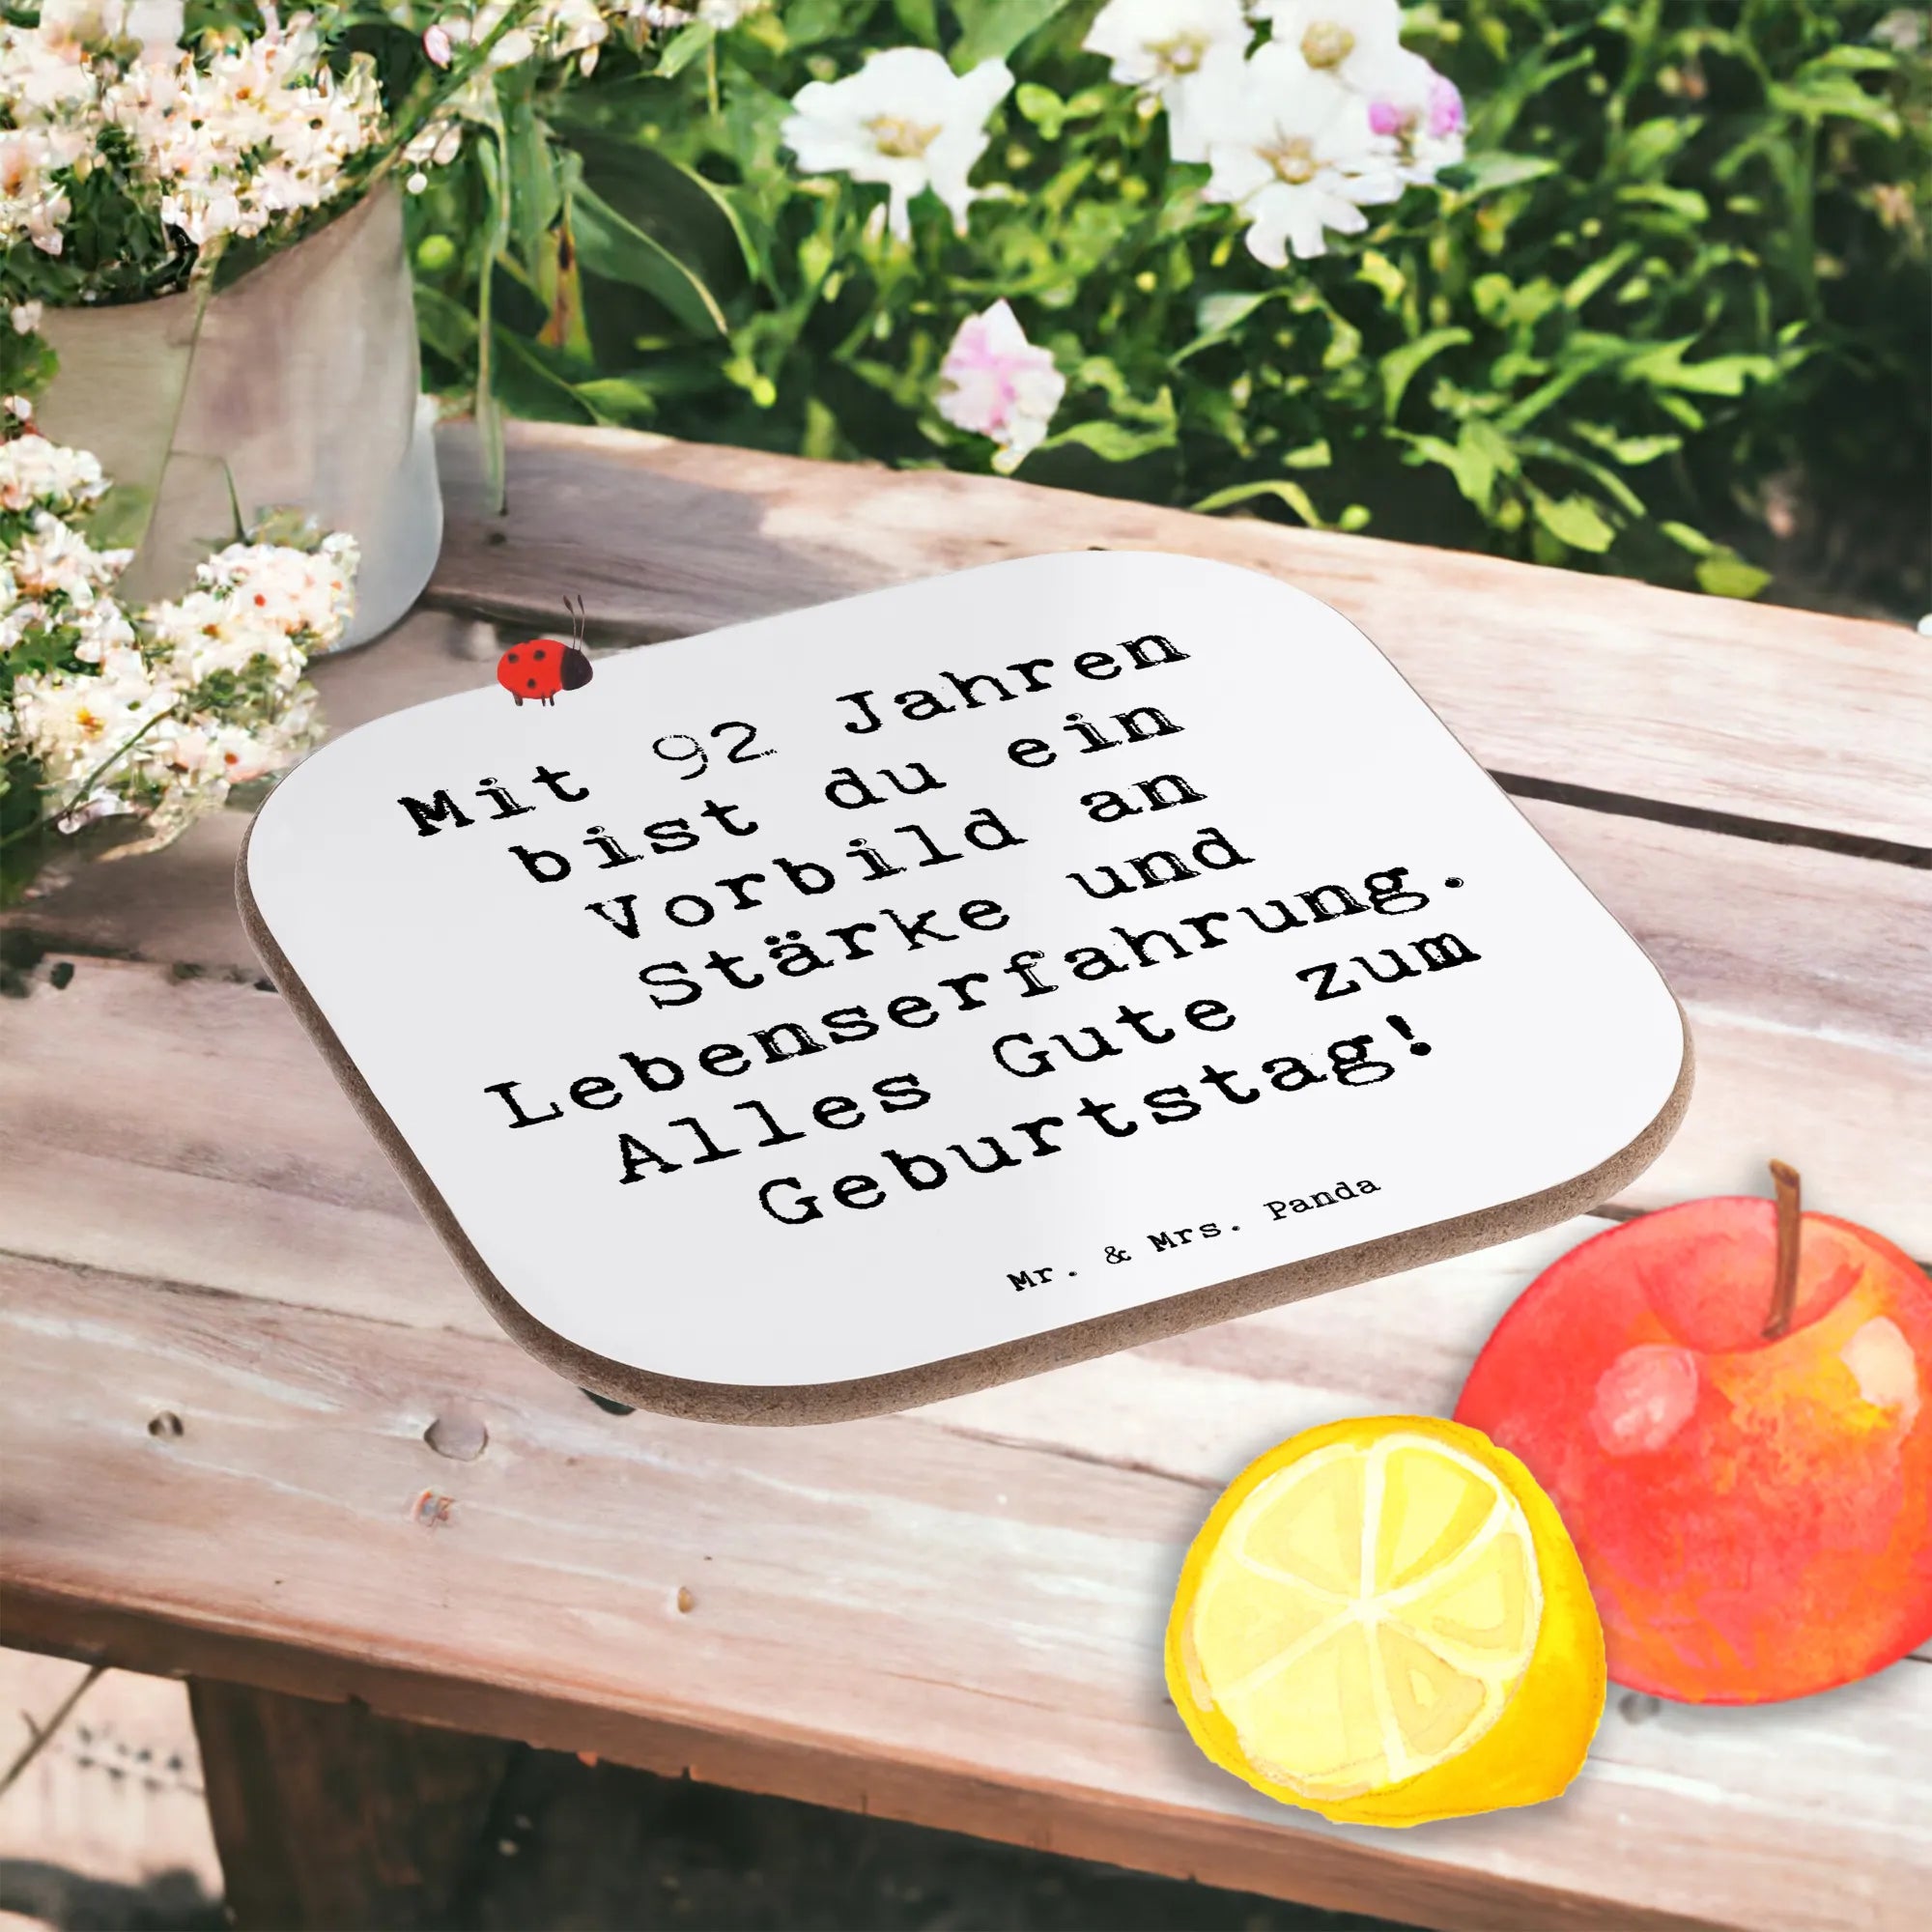 Mit 92 Jahren
bist du ein
Vorbild an
Stärke und
Lebenserfahrung.
Alles Gute zum
Geburtstag!
Mr. & Mrs. Panda